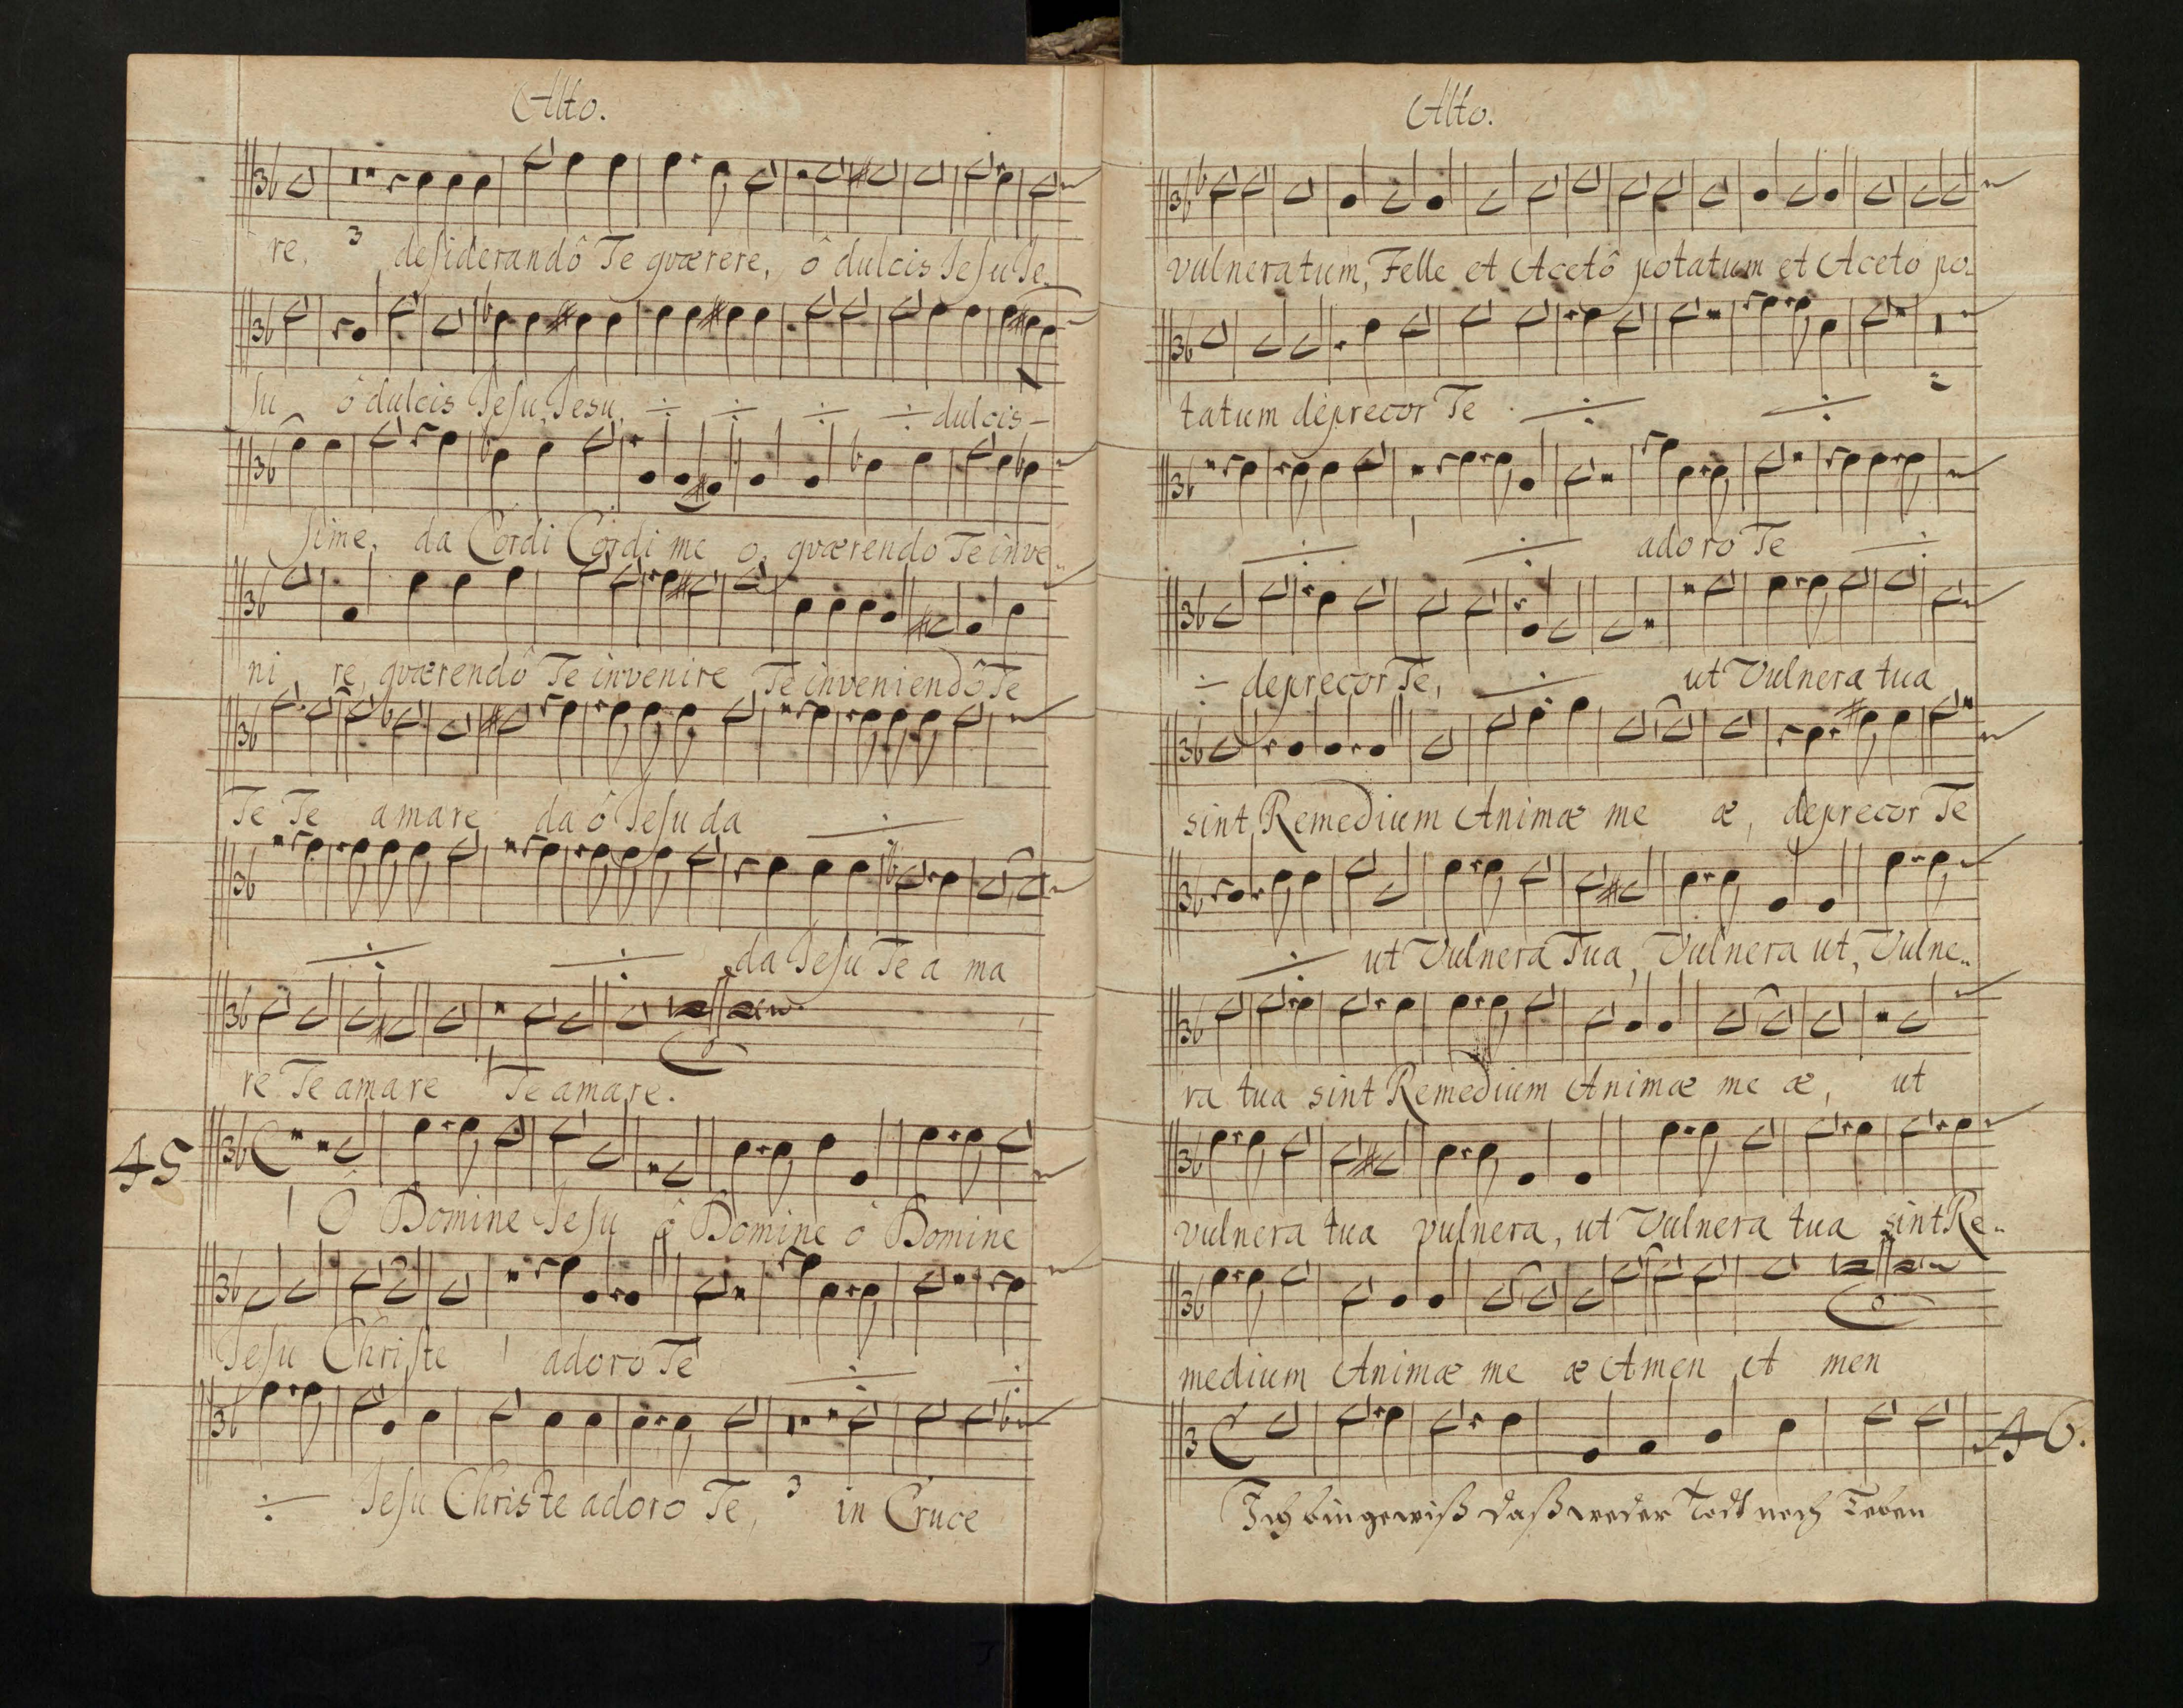 Alto.
re, 3 desiderandô Te quærere, ô dulcis Jesu Je
su ô dulcis Jesu, Jesu, ÷ ÷ ÷ ÷ dulcis-
sime, da Cordi Cordi me o, quærendo Te inve..
ni re, quærendô Te invenire, Te inveniendô Te
Te Te amare da ô Jesu da ÷
÷ ÷ da Jesu Te a ma
re Te amare Te amare.
45 1 Ô Domine Jesu ô Domine ô Domine
Jesu Christe 1 adoro Te ÷ ÷
÷ Jesu Christe adoro Te, 3 in Cruce
Alto.
vulneratum, Felle et Acetô potatum et Aceto po-
tatum deprecor Te ÷ ÷ 2
÷ 1 ÷ adoro Te ÷
÷ deprecor Te, ÷ ut Vulnera tua
sint Remedium Animæ me æ, deprecor Te
÷ ut Vulnera Tua, Vulnera ut, Vulne..
ra tua sint Remedium Animæ me æ, ut
vulnera tua vulnera, ut Vulnera tua sint Re..
medium Animæ me æ Amen A men
46.
Ich bin gewiß daß weder Todt noch Leben